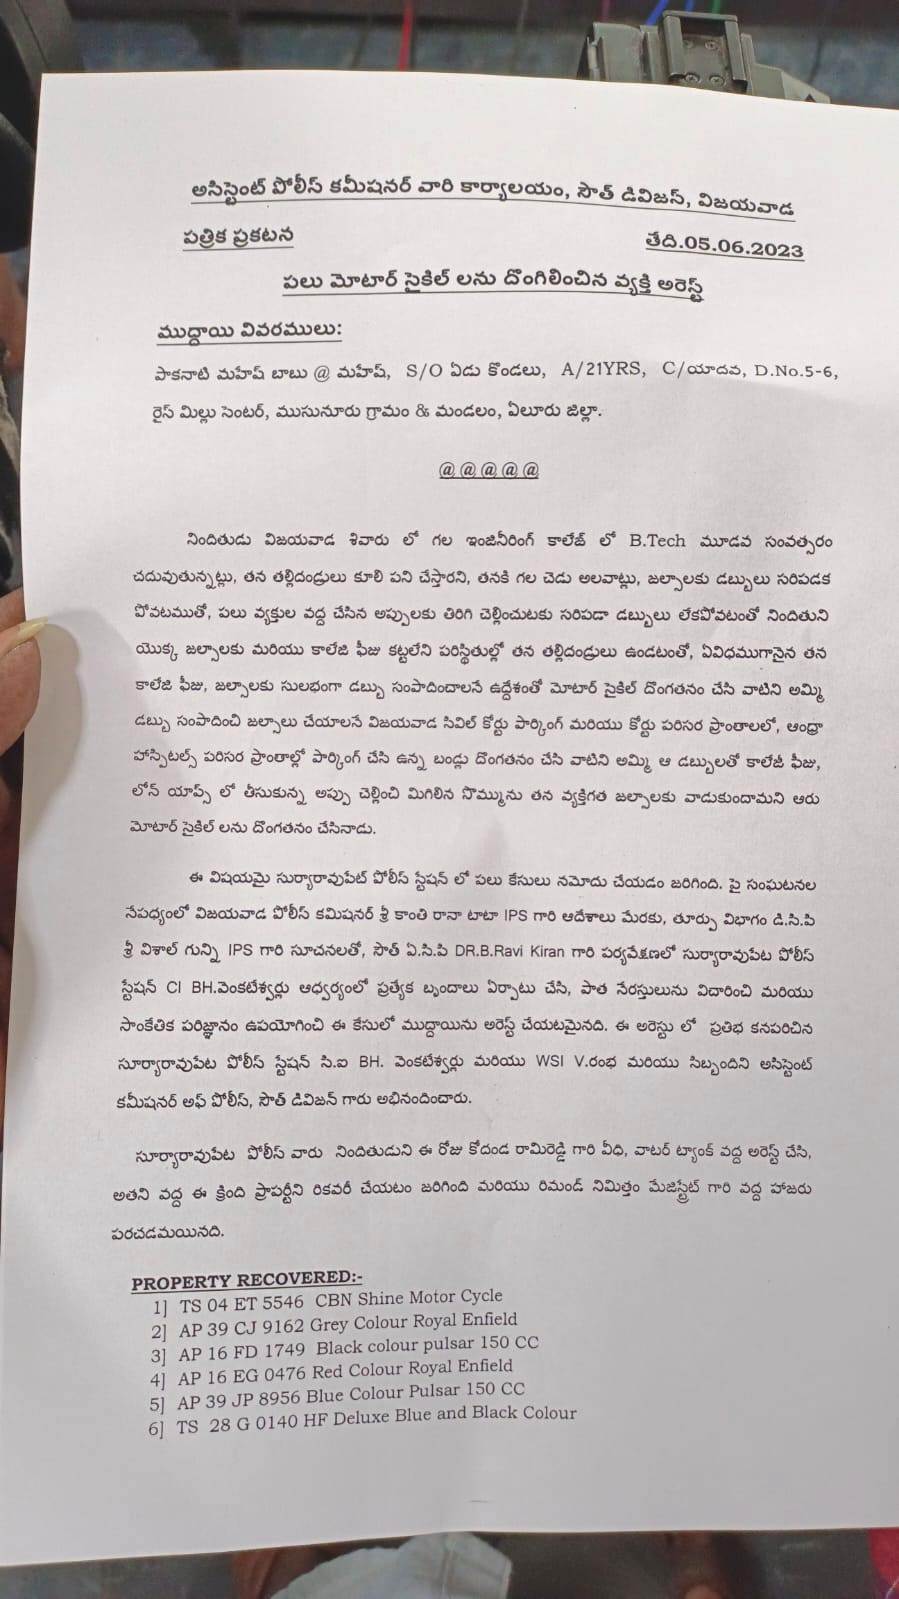 అసిస్టెంట్ పోలీస్ కమీషనర్ వారి కార్యాలయం, సౌత్ డివిజన్, విజయవాడ
పత్రిక ప్రకటన తేది.05.06.2023
పలు మోటార్ సైకిల్ లను దొంగిలించిన వ్యక్తి అరెస్ట్
ముద్దాయి వివరములు:
పాకనాటి మహేష్ బాబు @ మహేష్, S/O ఏడు కొండలు, A/21YRS, C/యాదవ, D.No.5-6,
రైస్ మిల్లు సెంటర్, ముసునూరు గ్రామం & మండలం, ఏలూరు జిల్లా.
@@@@@
నిందితుడు విజయవాడ శివారు లో గల ఇంజినీరింగ్ కాలేజ్ లో B.Tech మూడవ సంవత్సరం
చదువుతున్నట్లు, తన తల్లిదండ్రులు కూలి పని చేస్తారని, తనకి గల చెడు అలవాట్లు, జల్సాలకు డబ్బులు సరిపడక
పోవటముతో, పలు వ్యక్తుల వద్ద చేసిన అప్పులకు తిరిగి చెల్లించుటకు సరిపడా డబ్బులు లేకపోవటంతో నిందితుని
యొక్క జల్సాలకు మరియు కాలేజి ఫీజు కట్టలేని పరిస్థితుల్లో తన తల్లిదండ్రులు ఉండటంతో, ఏవిధముగానైన తన
కాలేజి ఫీజు, జల్సాలకు సులభంగా డబ్బు సంపాదించాలనే ఉద్దేశంతో మోటార్ సైకిల్ దొంగతనం చేసి వాటిని అమ్మి
డబ్బు సంపాదించి జల్సాలు చేయాలనే విజయవాడ సివిల్ కోర్టు పార్కింగ్ మరియు కోర్టు పరిసర ప్రాంతాలలో, ఆంధ్రా
హాస్పిటల్స్ పరిసర ప్రాంతాల్లో పార్కింగ్ చేసి ఉన్న బండ్లు దొంగతనం చేసి వాటిని అమ్మి ఆ డబ్బులతో కాలేజీ ఫీజు,
లోన్ యాప్స్ లో తీసుకున్న అప్పు చెల్లించి మిగిలిన సొమ్మును తన వ్యక్తిగత జల్సాలకు వాడుకుందామని ఆరు
మోటార్ సైకిల్ లను దొంగతనం చేసినాడు.
ఈ విషయమై సుర్యారావుపేట్ పోలీస్ స్టేషన్ లో పలు కేసులు నమోదు చేయడం జరిగింది. పై సంఘటనల
నేపధ్యంలో విజయవాడ పోలీస్ కమిషనర్ శ్రీ కాంతి రానా టాటా IPS గారి ఆదేశాలు మేరకు, తూర్పు విభాగం డి.సి.పి
శ్రీ విశాల్ గున్ని IPS గారి సూచనలతో, సౌత్ ఏ.సి.పి DR.B.Ravi Kiran గారి పర్యవేక్షణలో సుర్యారావుపేట పోలీస్
స్టేషన్ CI BH.వెంకటేశ్వర్లు ఆధ్వర్యంలో ప్రత్యేక బృందాలు ఏర్పాటు చేసి, పాత నేరస్తులును విచారించి మరియు
సాంకేతిక పరిజ్ఞానం ఉపయోగించి ఈ కేసులో ముద్దాయిను అరెస్ట్ చేయటమైనది. ఈ అరెస్టు లో ప్రతిభ కనపరిచిన
సూర్యారావుపేట పోలీస్ స్టేషన్ సి.ఐ BH. వెంకటేశ్వర్లు మరియు WSI V.రంభ మరియు సిబ్బందిని అసిస్టెంట్
కమీషనర్ అఫ్ పోలీస్, సౌత్ డివిజన్ గారు అభినందించారు.
సూర్యారావుపేట పోలీస్ వారు నిందితుడుని ఈ రోజు కోదండ రామిరెడ్డి గారి వీధి, వాటర్ ట్యాంక్ వద్ద అరెస్ట్ చేసి,
అతని వద్ద ఈ క్రింది ప్రాపర్టీని రికవరీ చేయటం జరిగింది మరియు రిమండ్ నిమిత్తం మేజిస్ట్రేట్ గారి వద్ద హాజరు
పరచడమయినది.
PROPERTY RECOVERED:-
1] TS 04 ET 5546 CBN Shine Motor Cycle
2] AP 39 CJ 9162 Grey Colour Royal Enfield
3] AP 16 FD 1749 Black colour pulsar 150 CC
4] AP 16 EG 0476 Red Colour Royal Enfield
5] AP 39 JP 8956 Blue Colour Pulsar 150 CC
6] TS 28 G 0140 HF Deluxe Blue and Black Colour